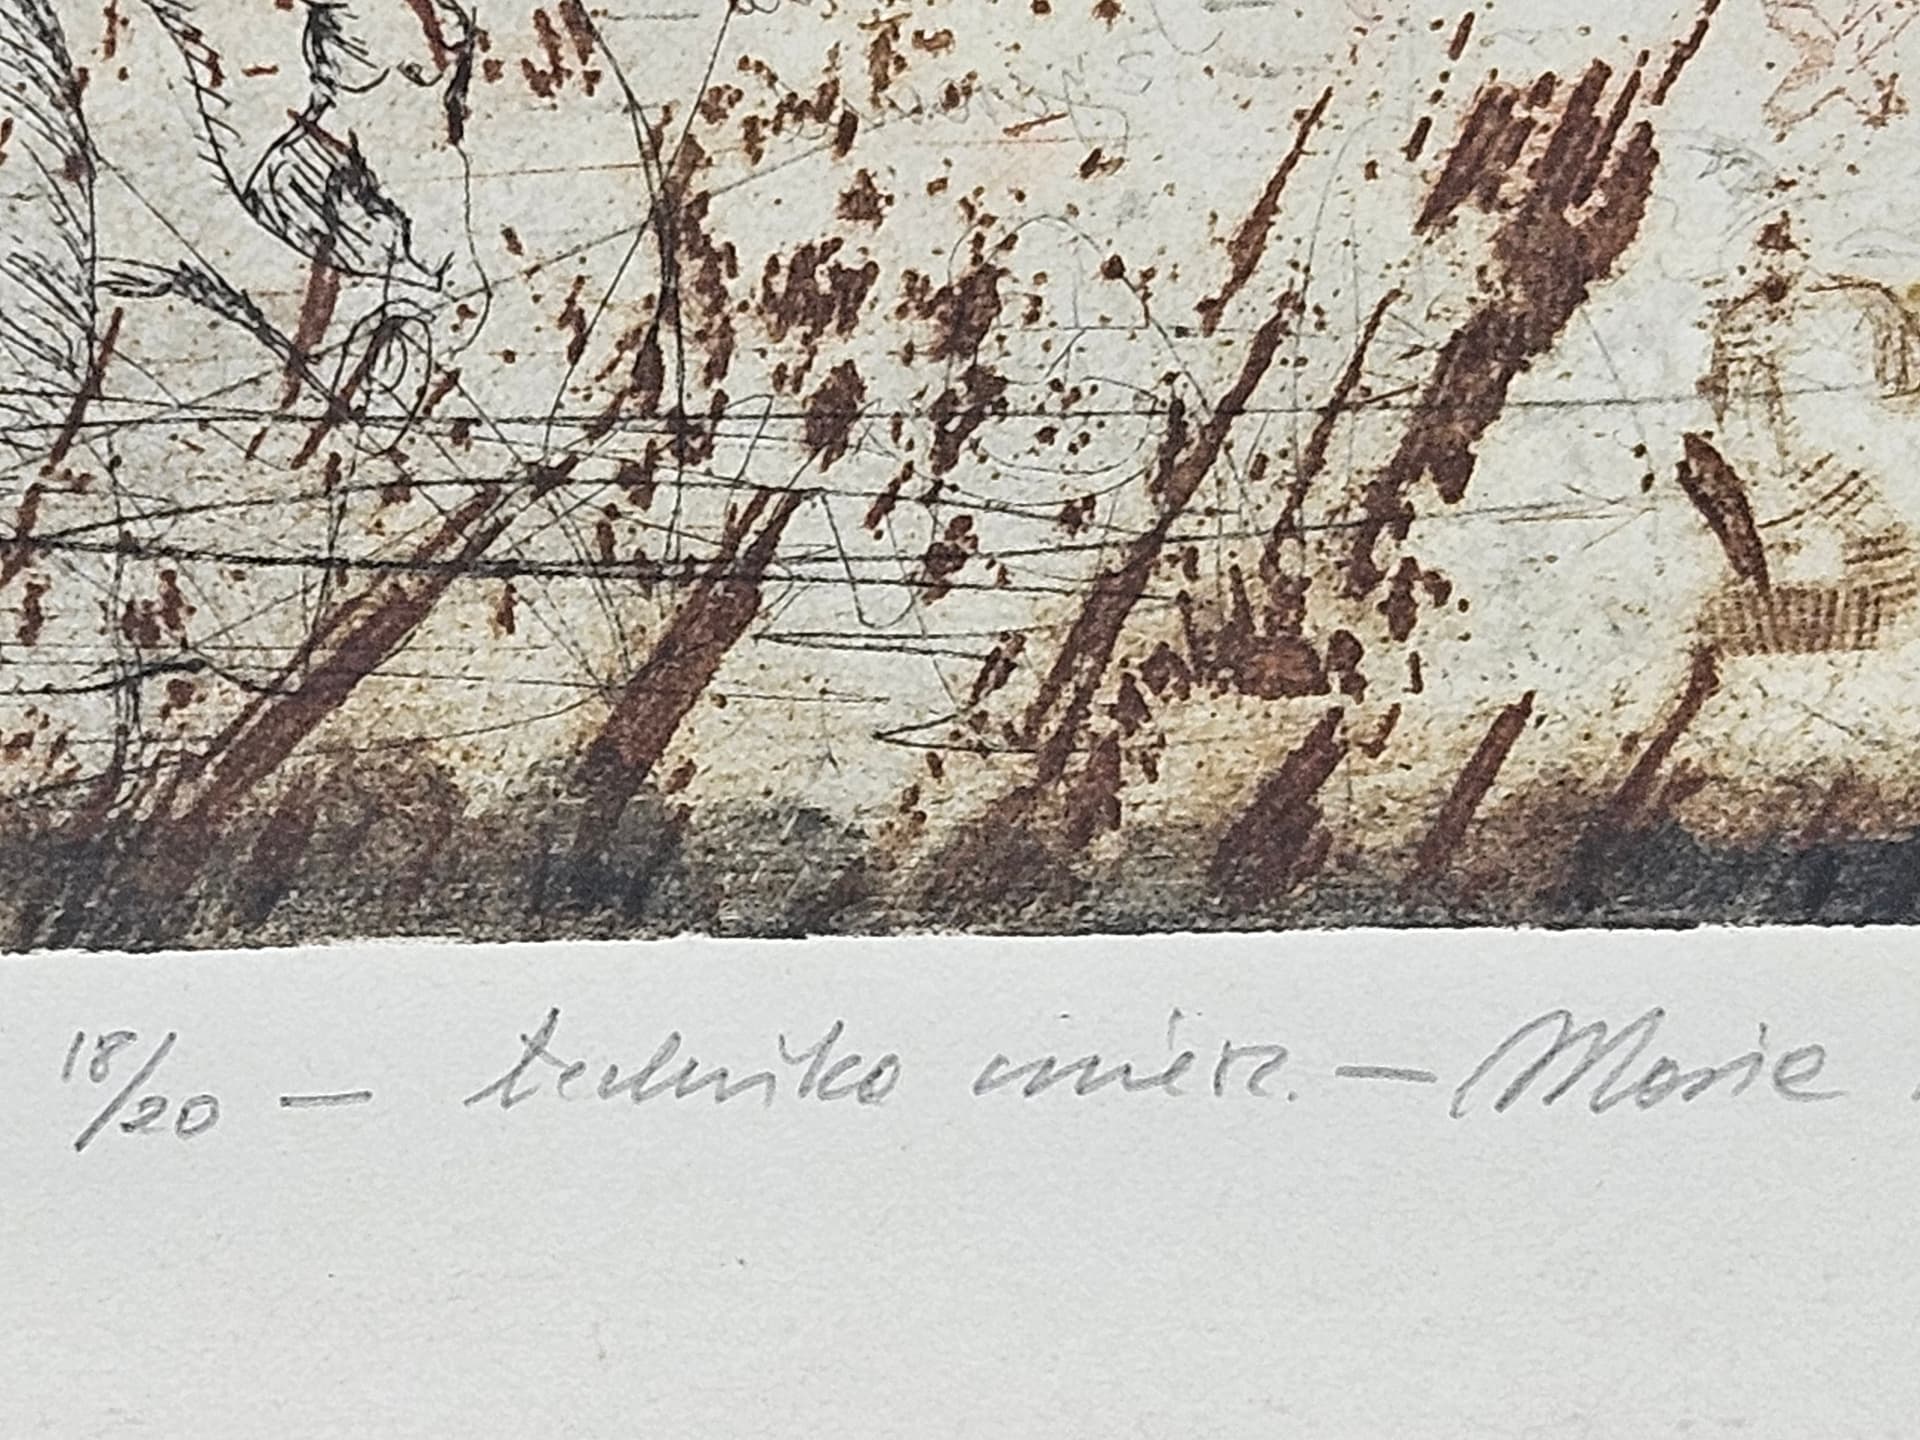 18/20 — technika miesz. — Maria